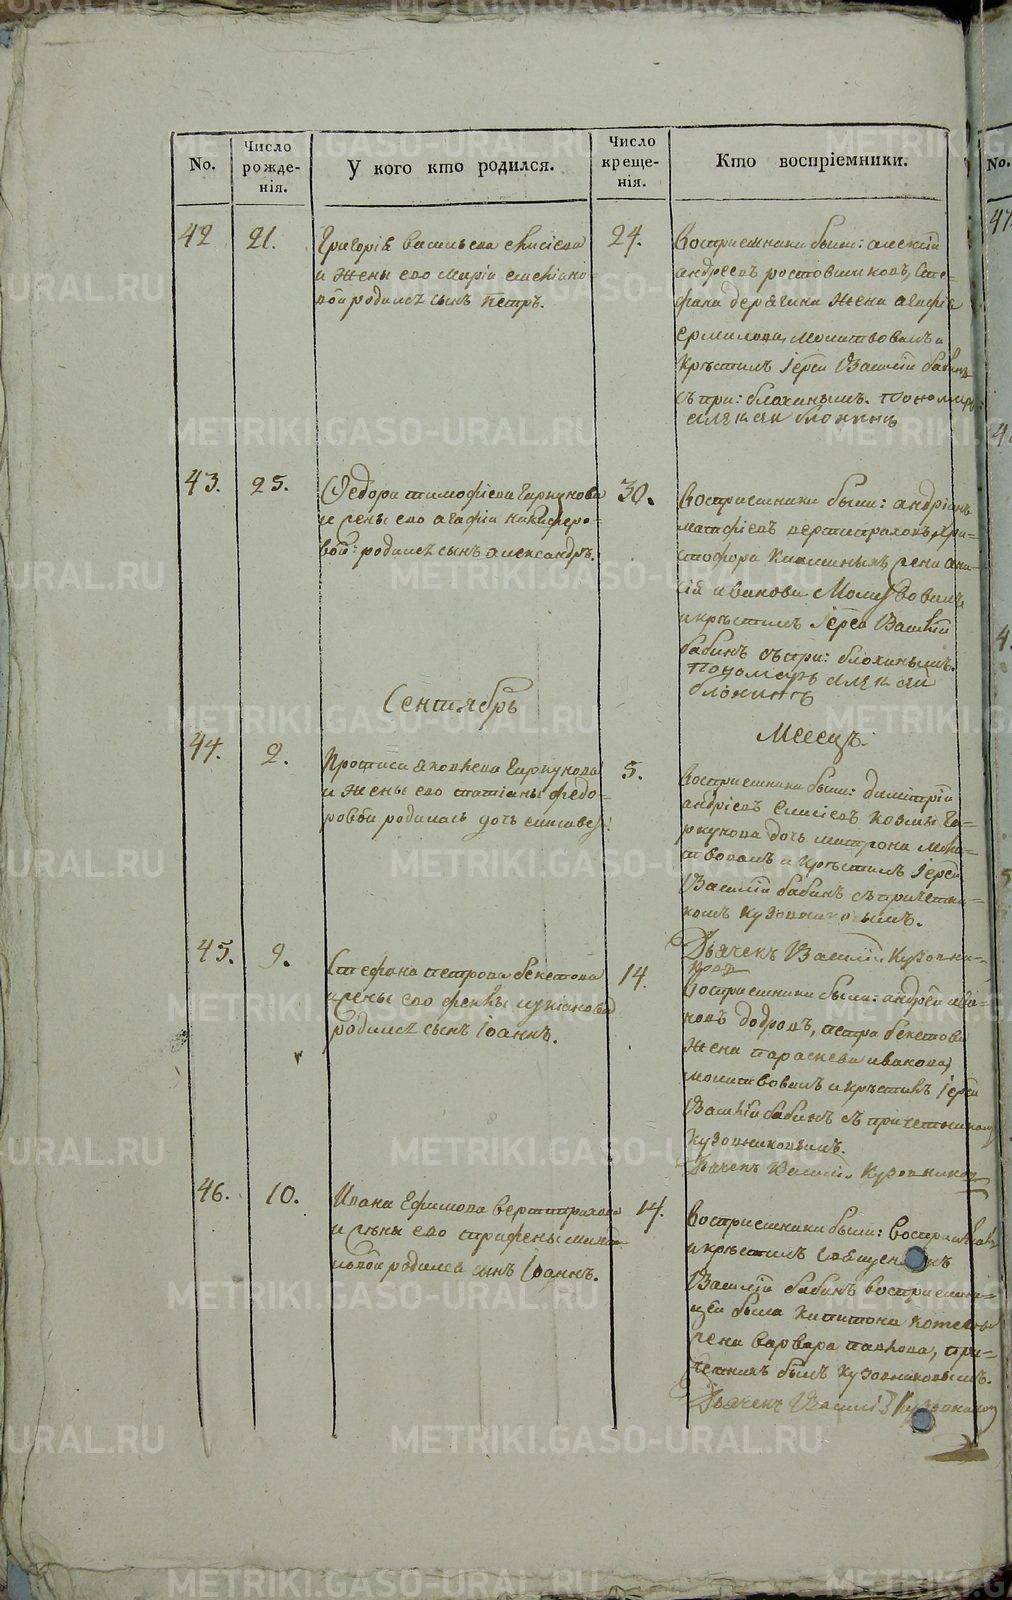 No.
Число рожде-нія.
У кого кто родился.
Число креще-нія.
Кто воспріемники.
42
21.
Григорія васильева елисіева
и жены его маріи емеліано
вой родился сынъ петръ.
24.
Воспріемники были: алексій
андреевъ ростовшиковъ, Сте-
фана дерягина жена агафія
ермилова, молитвовалъ и
крѣстилъ Іерей Василій бабинъ
съ при: блохинымъ. пономарь
алексеи блохинъ
43.
25.
Федора тимофиева гаркунова
и жены его агафіи никифоро-
вой: родился сынъ александръ.
30.
Воспріемники были: андріянъ
матфіевъ вертипраховъ, хри-
стофора жена
ивановна Молитвовалъ
и крѣстилъ Іерей Василій
бабинъ съ при: блохинымъ.
пономарь алексей
блохинъ
Сентябрь
Месецъ.
44.
2.
яковлева гаркунова
и жены его татіаны федо-
ровой родилась дочь елисавет:
5.
Воспріемники были: димитрій
андріевъ елисіевъ козмы га-
ркунова дочь матрона моли-
твовалъ и крѣстилъ Іерей
Василій бабинъ съ причетни-
комъ кузовниковымъ.
Дьячекъ Василій Кузовни-
ковъ
45.
9.
Стефана петрова бекетова
и жены его феклы лукіановой
родился сынъ Іоаннъ.
14.
Воспріемники были: андрей ива-
новъ петра бекетова
жена параскева иванова,
молитвовалъ и крѣстилъ Іерей
Василій бабинъ съ причетникомъ
кузовниковымъ.
Дьячекъ Василій Кузовников
46.
10.
Ивана Ефимова вертипрахова
и жены его
родился сынъ Іоаннъ.
14.
Воспріемники были:
и крѣстилъ священникъ
Василій бабинъ воспріемни-
цей была капитона
жена варвара павлова, при-
четникъ былъ кузовниковымъ.
Дьячекъ Василій Кузовников
No.
47
METRIKI.GASO-URAL.RU